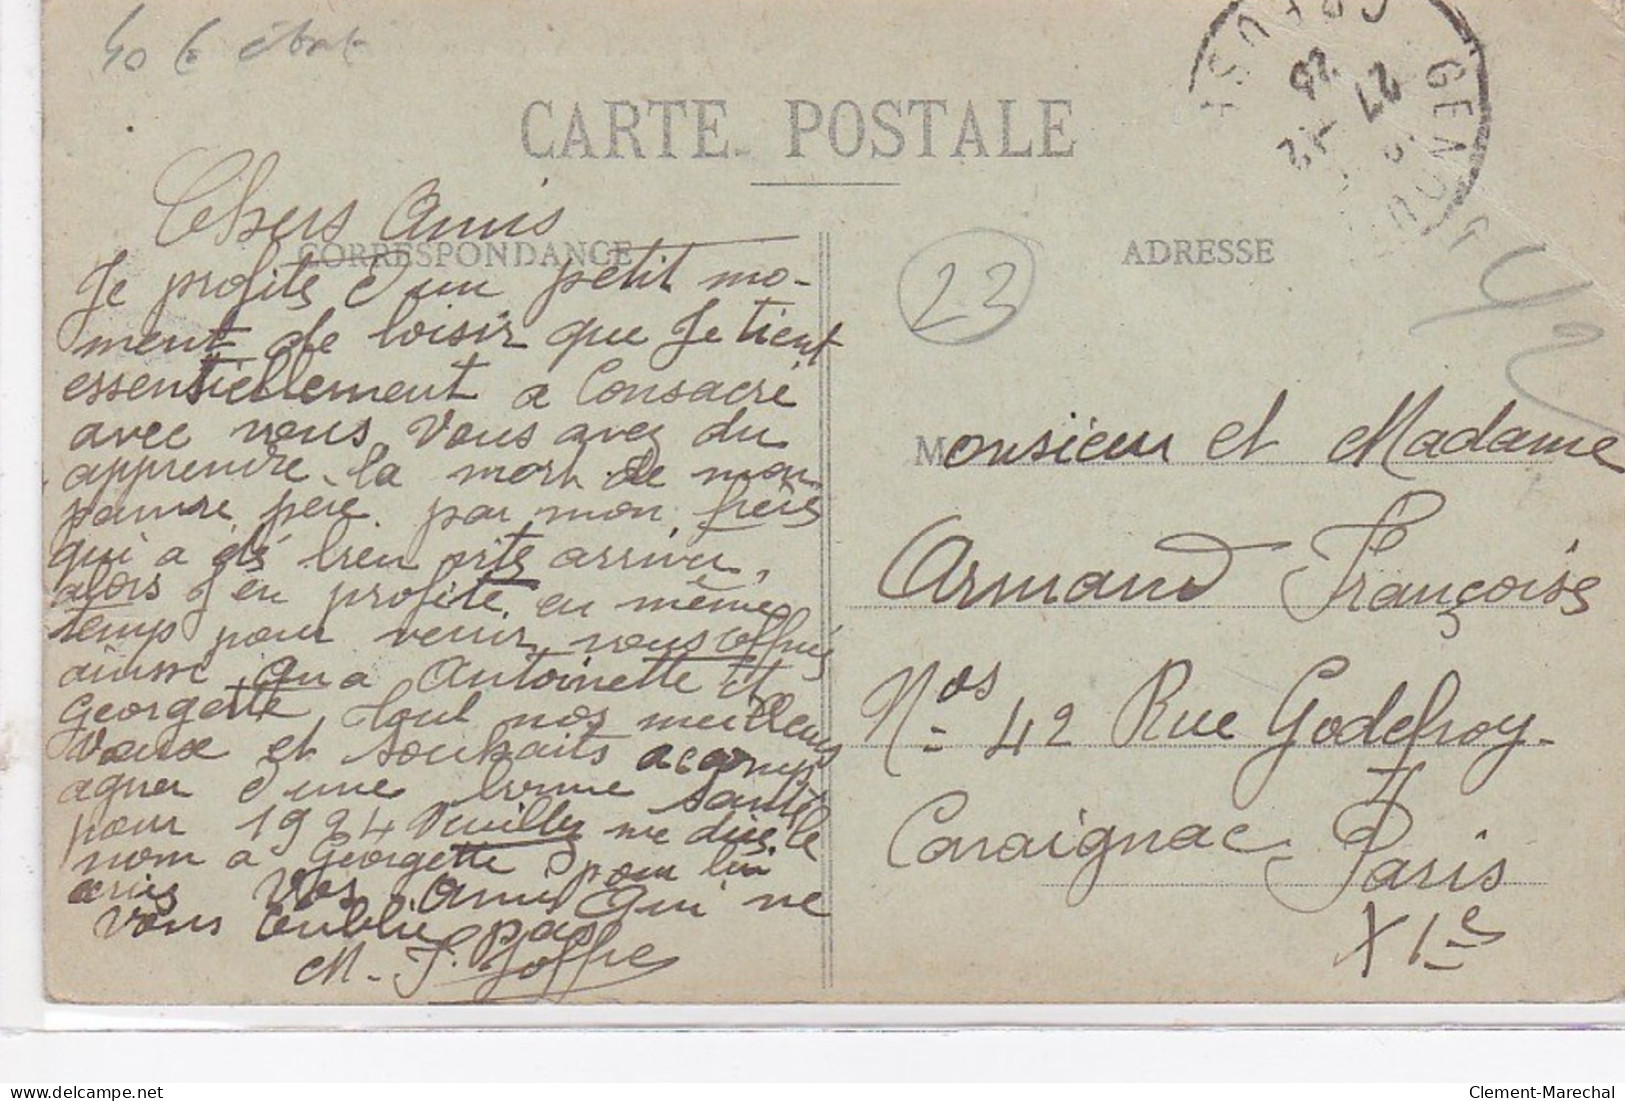 CARTE POSTALE
CORRESPONDANCE
Chers Amis
Je profite d'un petit mo-
ment de loisir que Je tient
essentiellement a Consacré
avec vous Vous avez du
apprendre la mort de mon
pauvre père par mon frère
qui a été bien vite arriver,
alors J'en profite en même
temps pour venir vous offrir
ainsse qu'a Antoinette et
Georgette tout nos meilleurs
vœux et souhaits accomp
agner d'une bonne santé
pour 1924 Veuillez me dire le
nom a Georgette pour lui
écrire Vos Amis Qui ne
Vous oublie pas
M. J. Joffre
ADRESSE
23
Monsieur et Madame
Armand Françoise
Nos 42 Rue Godefroy
Cavaignac Paris
XIe
GEN
CREUSE
Clement-Marechal